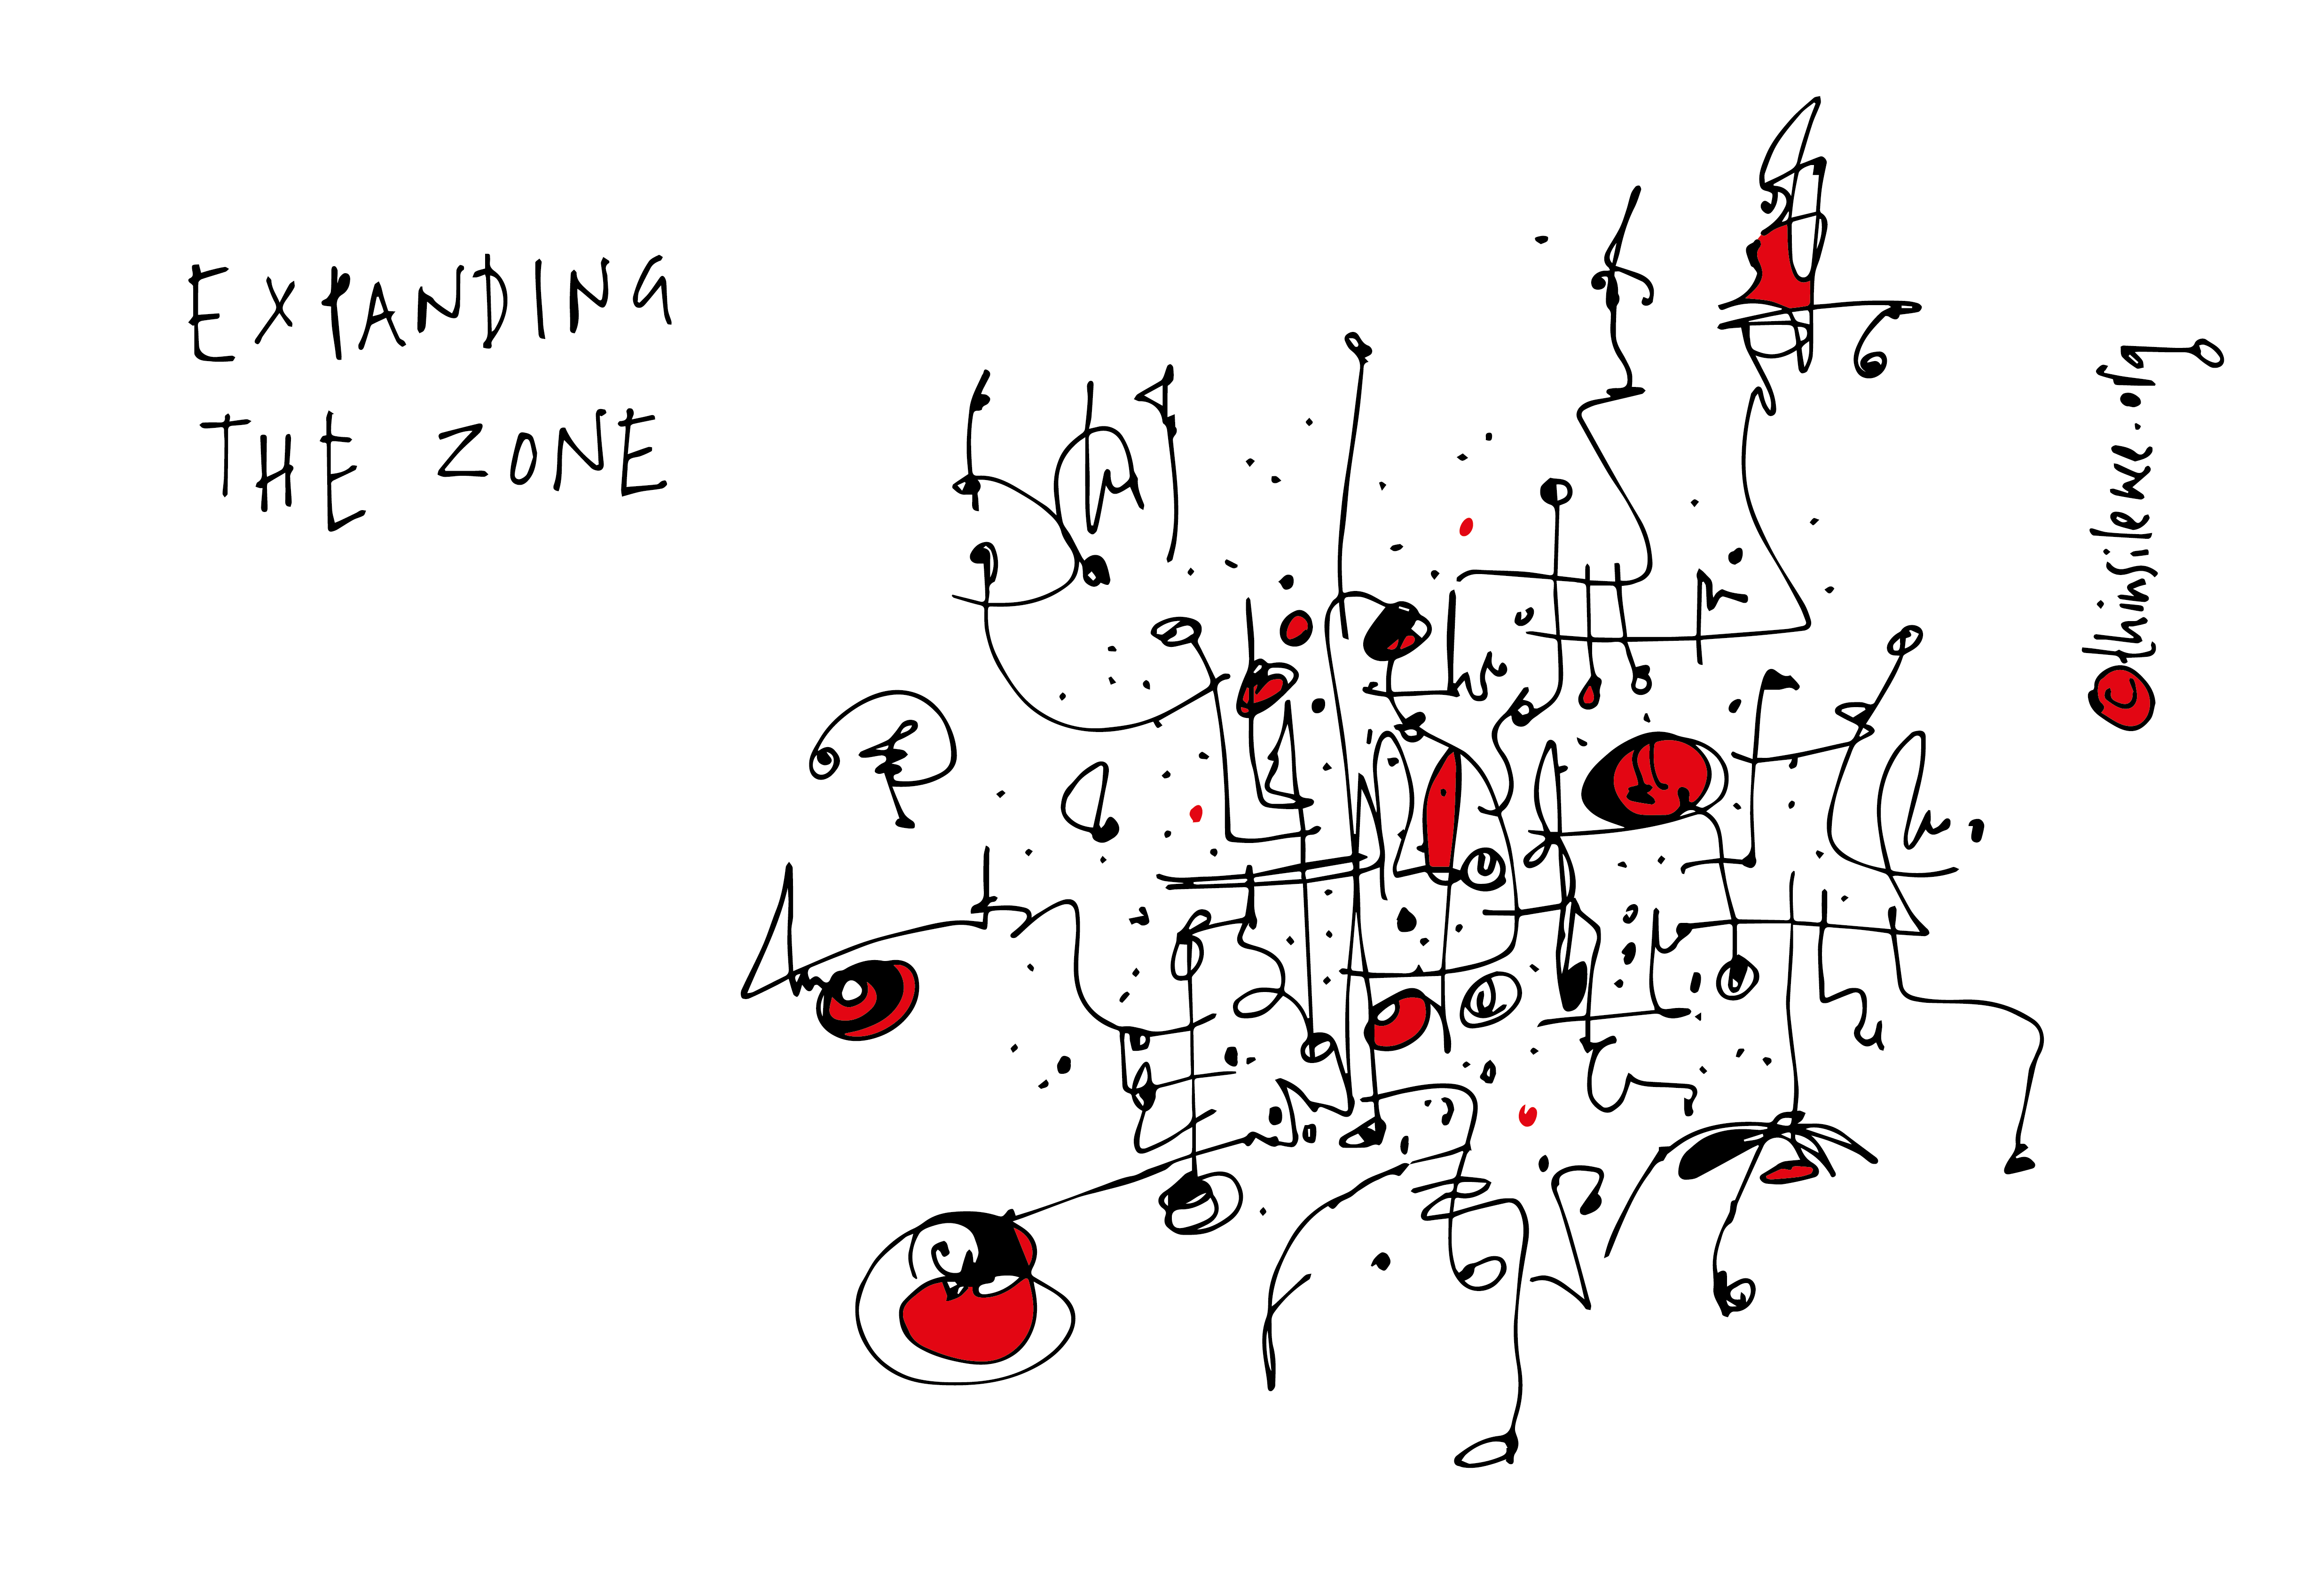 EXPANDING
THE ZONE
@chrislews.org